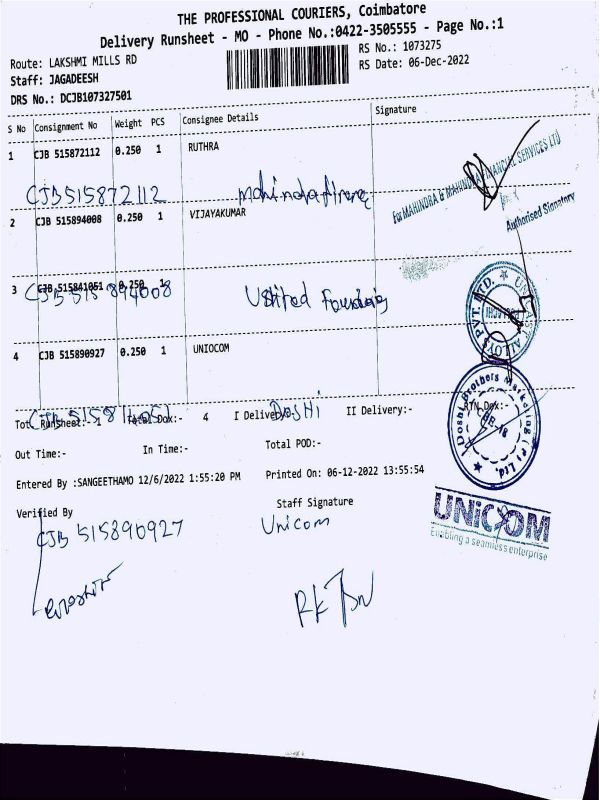 THE PROFESSIONAL COURIERS, Coimbatore
Delivery Runsheet - MO - Phone No.:0422-3505555 - Page No.:1
Route: LAKSHMI MILLS RD
RS No.: 1073275
Staff: JAGADEESH
RS Date: 06-Dec-2022
DRS No.: DCJB107327501
S No Consignment No Weight PCS Consignee Details Signature
1 CJB 515872112 0.250 1 RUTHRA
For MAHINDRA & MAHINDRA FINANCIAL SERVICES LTD
Authorised Signatory
CJB 515872112
2 CJB 515894008 0.250 1 VIJAYAKUMAR
3 CJB 515841051 0.250 1
CJB 515894008
PVT. LTD. ★ ALLOYS
4 CJB 515890927 0.250 1 UNIOCOM
Doshi Brothers Marketing (P) Ltd.
CBE-18
Tot. Runsheet:- 1 Total Dox:- 4 I Delivery:- II Delivery:- RTN Dox:-
DOSHI
Out Time:- In Time:- Total POD:-
Entered By :SANGEETHAMO 12/6/2022 1:55:20 PM Printed On: 06-12-2022 13:55:54
Verified By Staff Signature
UNICOM
Enabling a seamless enterprise
CJB 515890927 Unicom